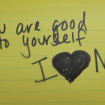 u are good
to yourself
I ♥ N